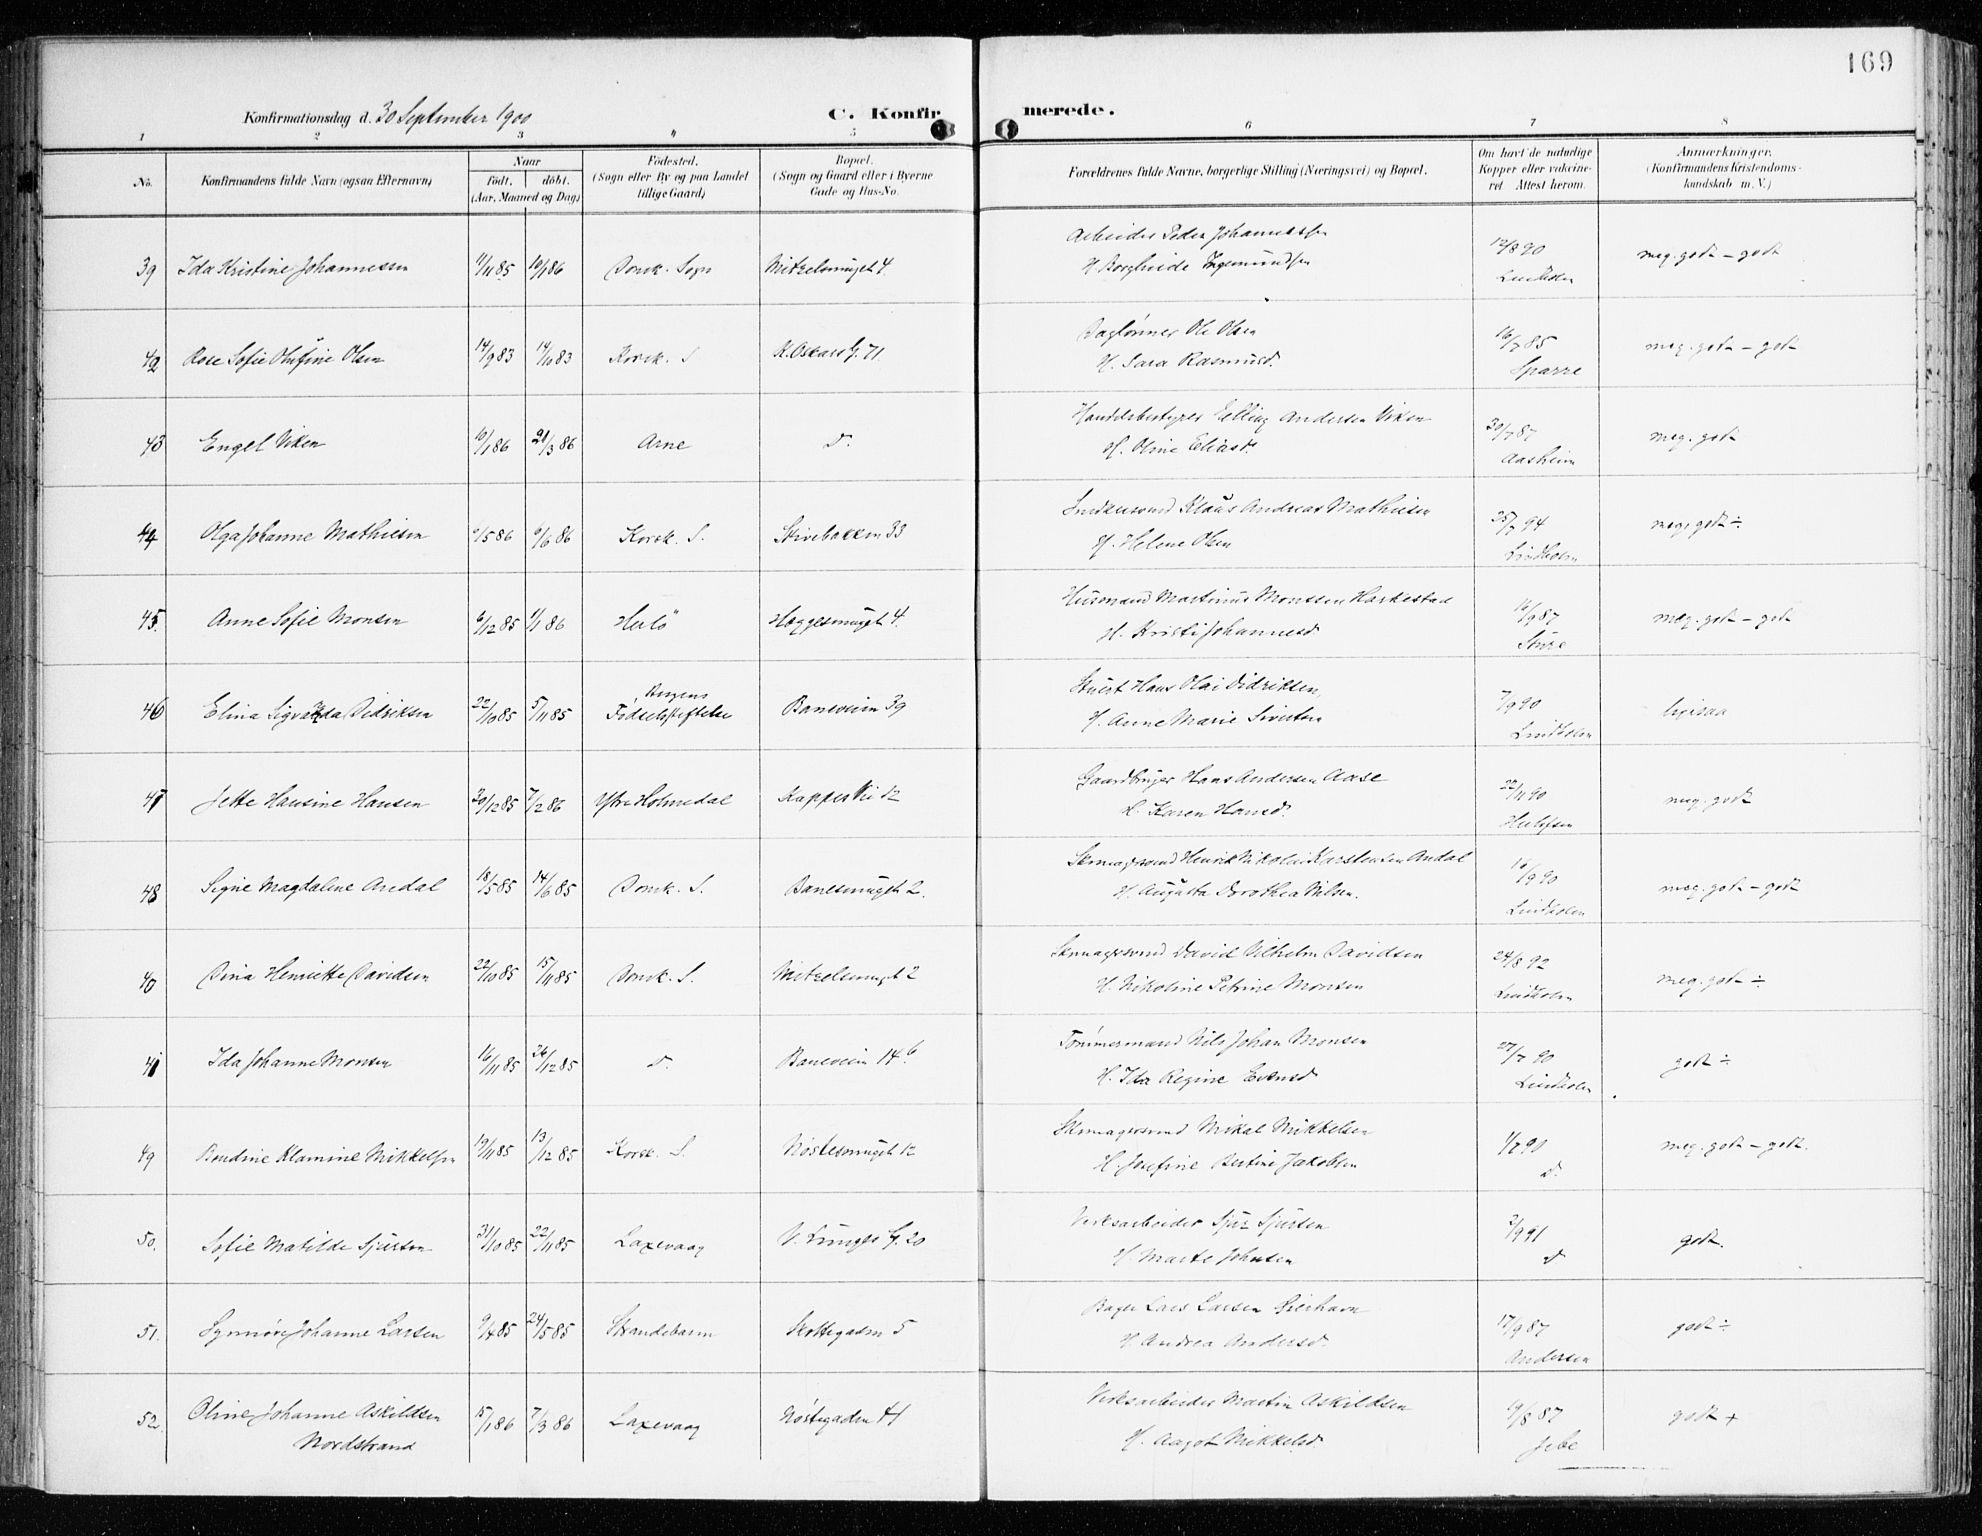 169
Konfirmationsdag d. 30 September 1900
C. Konfirmerede.
1 2 3 4 5 6 7 8
No. Konfirmandens fulde Navn (ogsaa Efternavn) Naar Födt. döbt. (Aar, Maaned og Dag) Födested. (Sogn eller By og paa Landet tillige Gaard) Bopæl. (Sogn og Gaard eller i Byerne Gade og Hus-No. Forældrenes fulde Navne, borgerlige Stilling (Næringsvei) og Bopæl. Om havt de naturlige Kopper eller vakcineret. Attest herom. Anmærkninger. (Konfirmandens Kristendomskundskab m. V.)
39 Ida Kristine Johannesen 11/11 85 10/1 86 Domk. Sogn Mitzelsmuget 4. Arbeider Peder Johannessen 12/8 90 meg. godt - godt
H. Borghide Ingemundsen Lindholm
42 Rose Sofie Olufine Olsen 14/9 83 14/10 83 Korsk. S K. Oskars G. 71. Daglønner Ole Olsen 16/7 85 meg. godt - godt
H. Sara Rasmusd. Sparre
43 Engel Viken 10/1 86 21/3 86 Arne d. Handelsbestyrer Elling Andersen Viken 30/7 87 meg. godt
H. Oline Eliasd. Aasheim
44 Olga Johanne Mathiesen /5 86 6/6 86 Korsk. S. Stivebakken 33 Snedkersvend Klaus Andreas Mathiesen 25/7 94 meg. godt ÷
H. Helene Olsen Lindholm
45. Anne Sofie Monsen 6/12 85 1/1 86 Herlö Heggesmuget 4. Husmand Martinus Monssen Harkestad 16/9 87 meg. godt - godt
H. Kristi Johannesd. Sture
46 Elina Sigvalda Didriksen 22/10 85 5/11 85 Bergens Fødselsstiftelse Baneveien 39 Stuert Hans Olai Didriksen, 7/9 90 ligesaa
H. Anne Marie Sivertsen Lindholm
47 Jette Hansine Hansen 30/12 85 7/2 86 Ytre Holmedal Kappesvei 12 Gaardbruger Hans Andersen Aase 22/11 90 meg. godt
H. Karen Hansd. Herlofsen
48 Signe Magdaline Andal 18/5 85 14/6 85 Domk. S. Banesmuget 2. Skomagersvend Henrik Nikolai Karstensen Andal 16/9 90 meg. godt - godt
H. Augusta Dorothea Nilsen. Lindholm
40 Dina Henriette Davidsen 22/10 85 15/11 85 Domk. S. Mitzelsmuget 2 Skomagersvend David Vilhelm Davidsen 24/8 92 meg. godt ÷
H. Nikoline Petrine Monsen Lindholm
41 Ida Johanne Monsen 16/11 85 26/12 85 d. Baneveien 14 b Tømmermand Nils Johan Monsen 27/7 90 godt ÷
H. Ida Regine Evensd Lindholm
49 Bendine Klamine Mikkelsen 19/11 85 13/12 85 Korsk. S. Nøstesmuget 12 Skomagersvend Mikal Mikkelsen 1/7 90 meg. godt - godt.
H. Josefine Bertine Jakobsen d.
50. Sofie Matilde Sjursen 31/10 85 22/11 85 Laxevaag V. Lunges G. 20 Verksarbeider Sjur Sjursen 2/9 91 godt.
H. Marte Johnsen d
51. Synnøve Johanne Larsen 9/4 85 24/5 85 Strandebarm Skottegaden 5 Bager Lars Larsen Gierhavn 17/9 87 godt ÷
H. Andrea Andersd. Andersen
52. Oline Johanne Askildsen Nordstrand 15/1 86 7/3 86 Laxevaag Nøstegaden 41 Verksarbeider Martin Askildsen 19/8 87 godt +
H. Aagot Mikkelsd Jebe